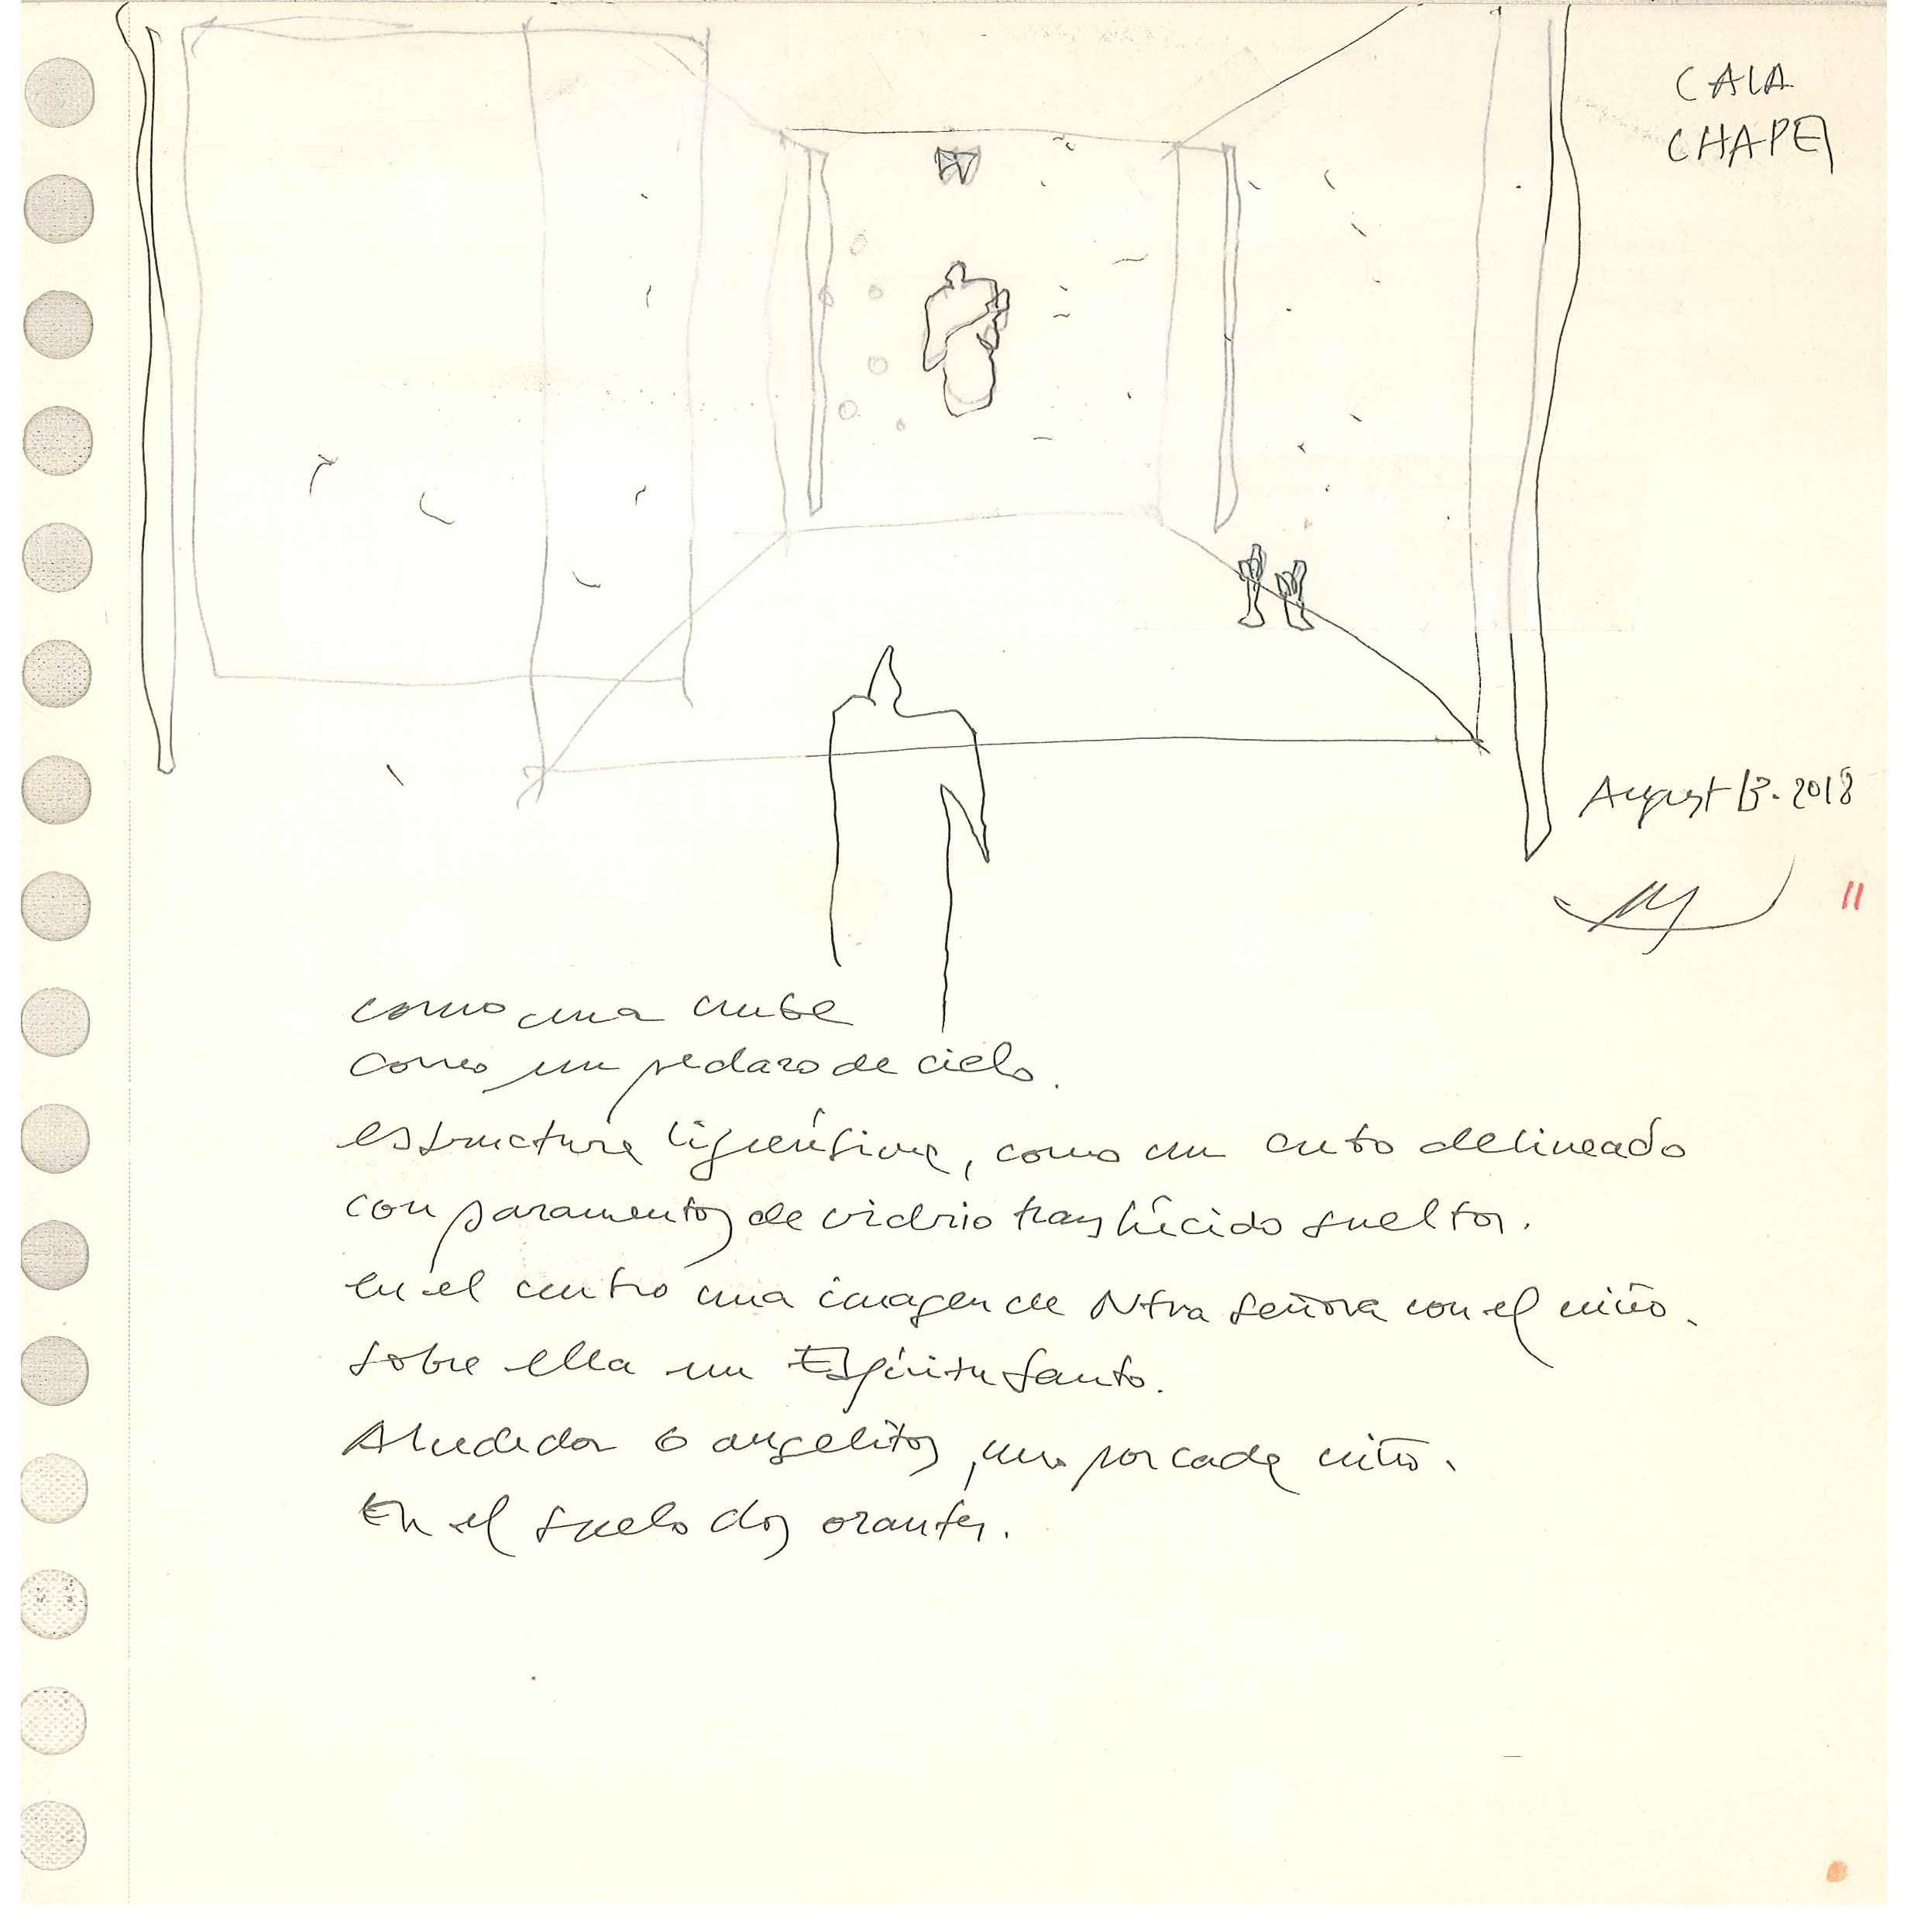 CALA
CHAPEL
August 13. 2018
11
como una nube
como un pedazo de cielo.
estructura ligerísima, como un cubo delineado
con paramentos de vidrio traslúcido sueltos.
en el centro una imagen de Ntra Señora con el niño.
sobre ella un Espíritu Santo.
Alrededor 6 angelitos, uno por cada niño.
En el suelo dos orantes.